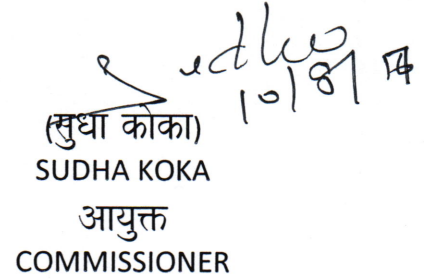 Sudha
10/8/
(सुधा कोका)
SUDHA KOKA
आयुक्त
COMMISSIONER